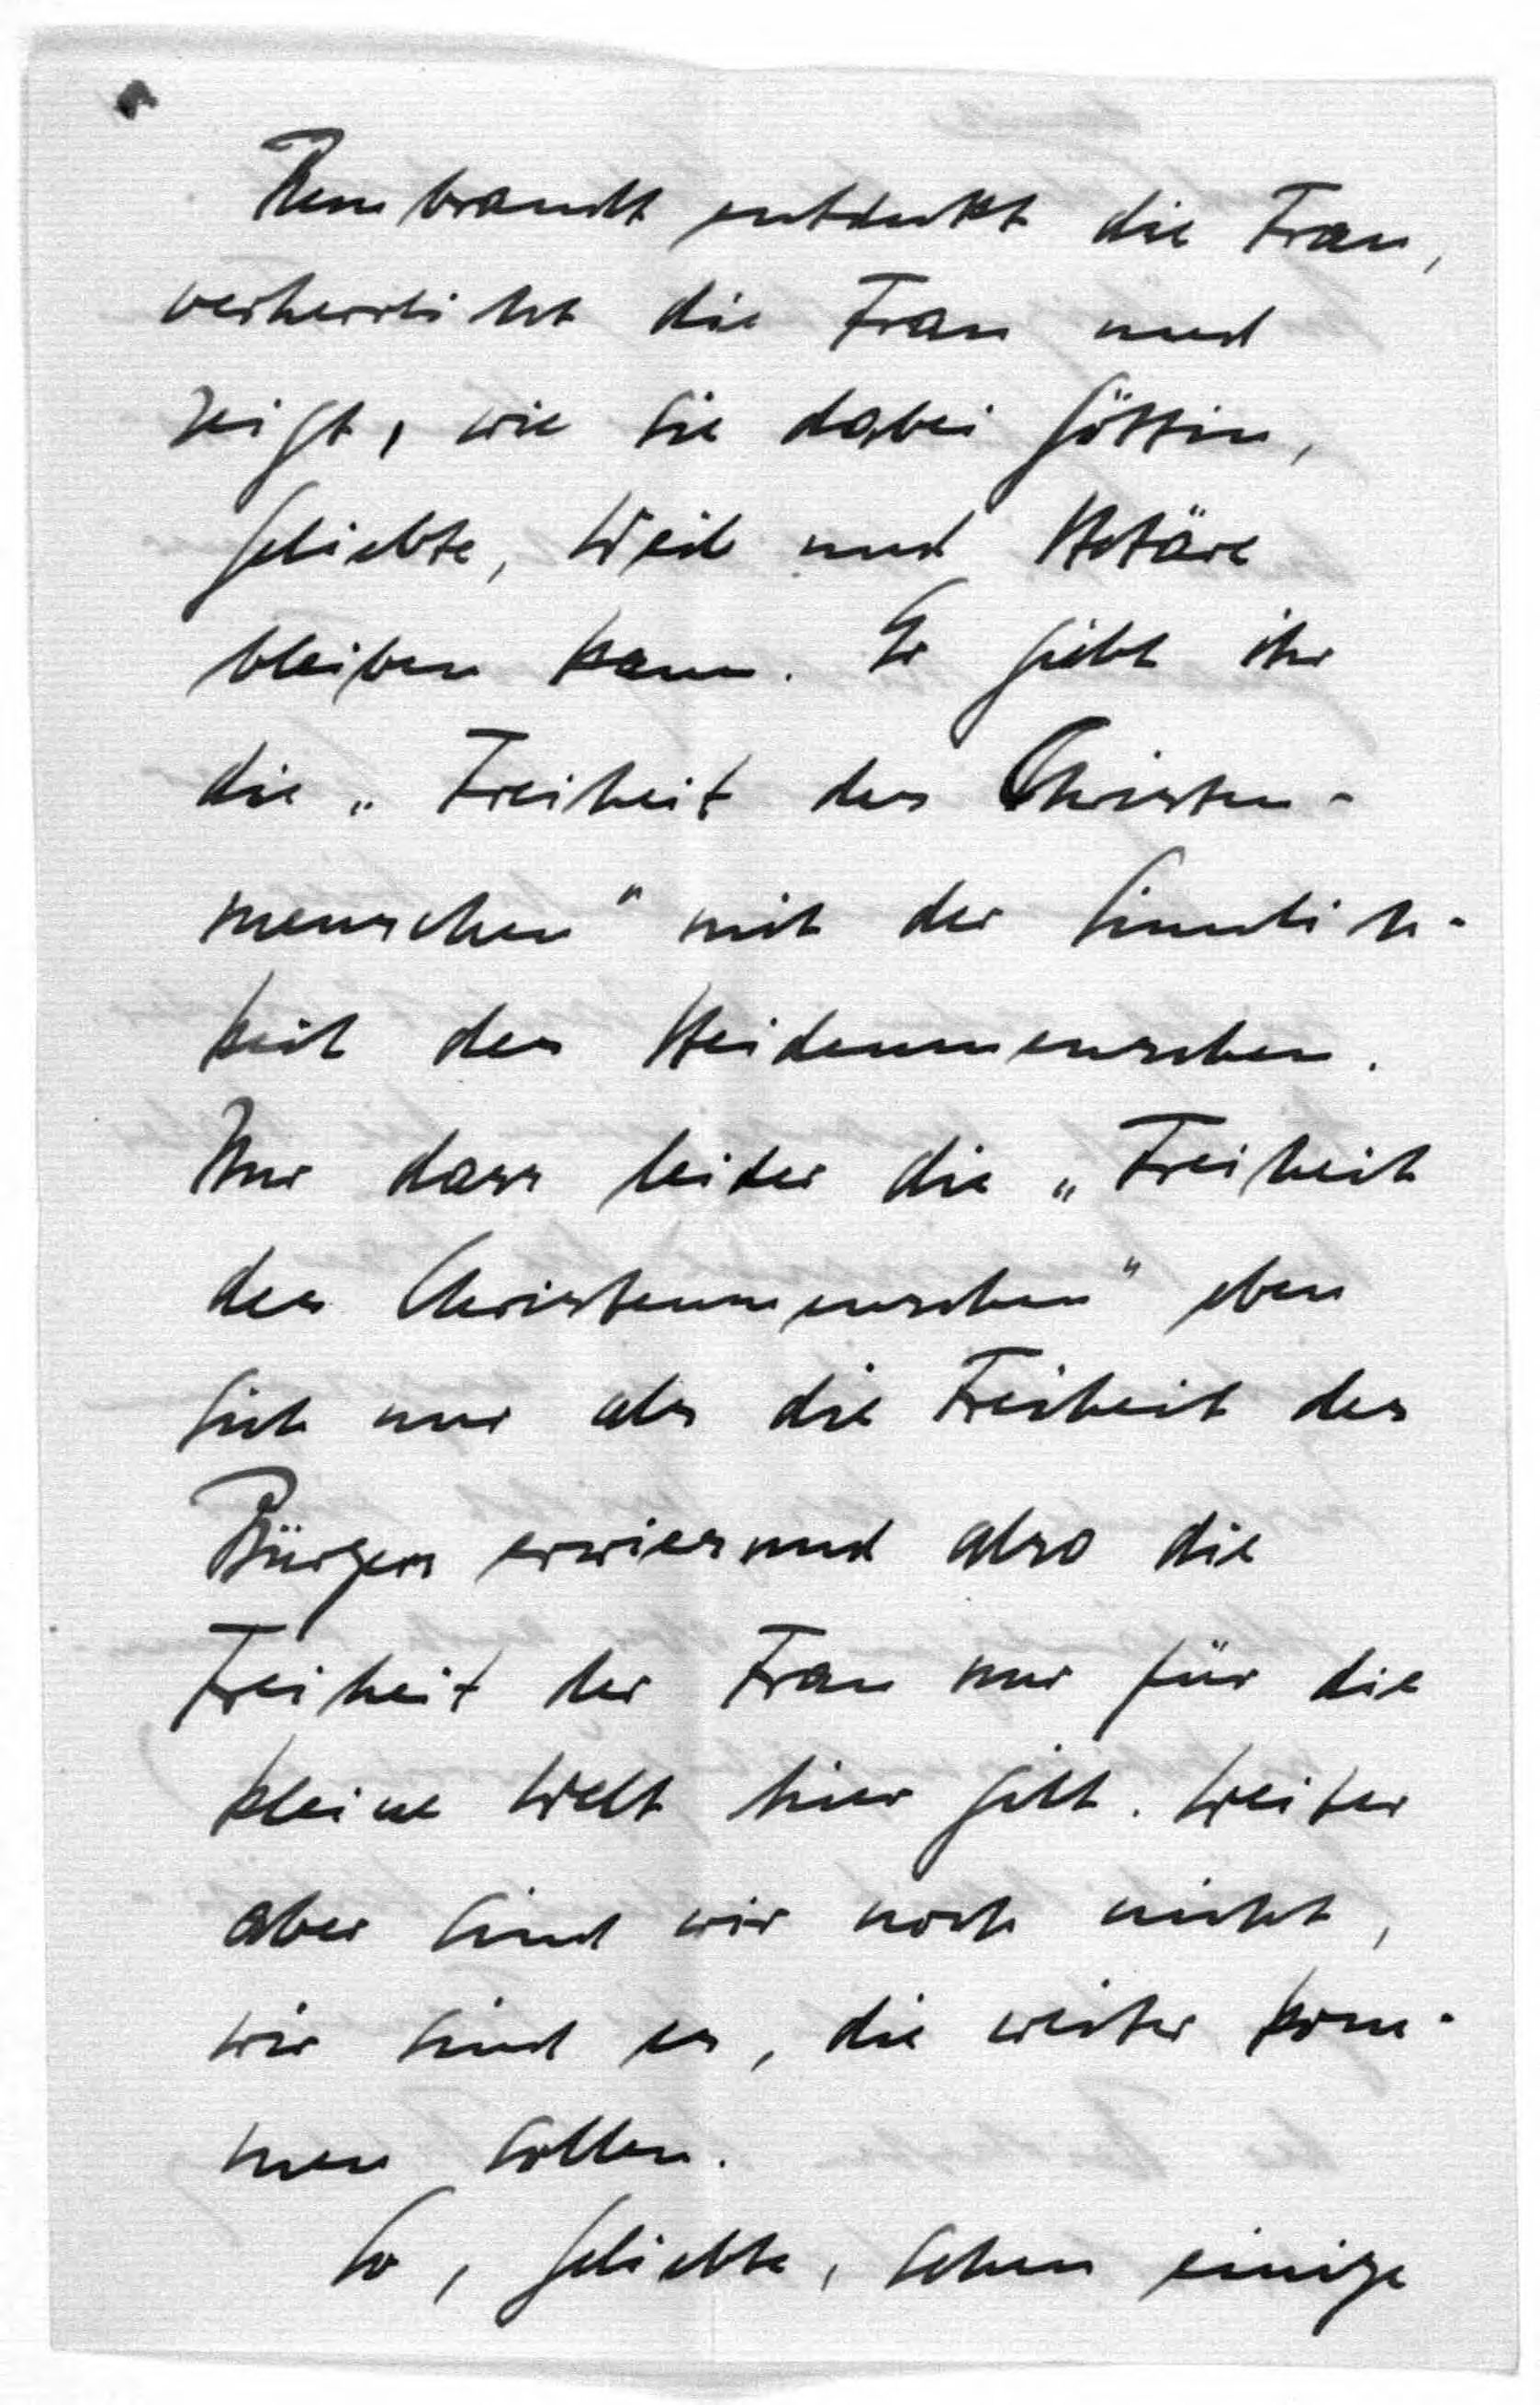 Rembrandt entdeckt die Frau,
verherrlicht die Frau und
zeigt, wie sie dabei Göttin,
Geliebte, Weib und Hetäre
bleiben kann. Er giebt ihr
die „Freiheit des Christen-
menschen" mit der Sinnlich-
keit des Heidenmenschen.
Nur dass leider die „Freiheit
des Christenmenschen" eben
sich nur als die Freiheit des
Bürgers erwies und also die
Freiheit der Frau nur für die
kleine Welt hier gilt. Weiter
aber sind wir noch nicht,
wir sind es, die weiter kom-
men sollen.
So, Geliebte, sehen einige